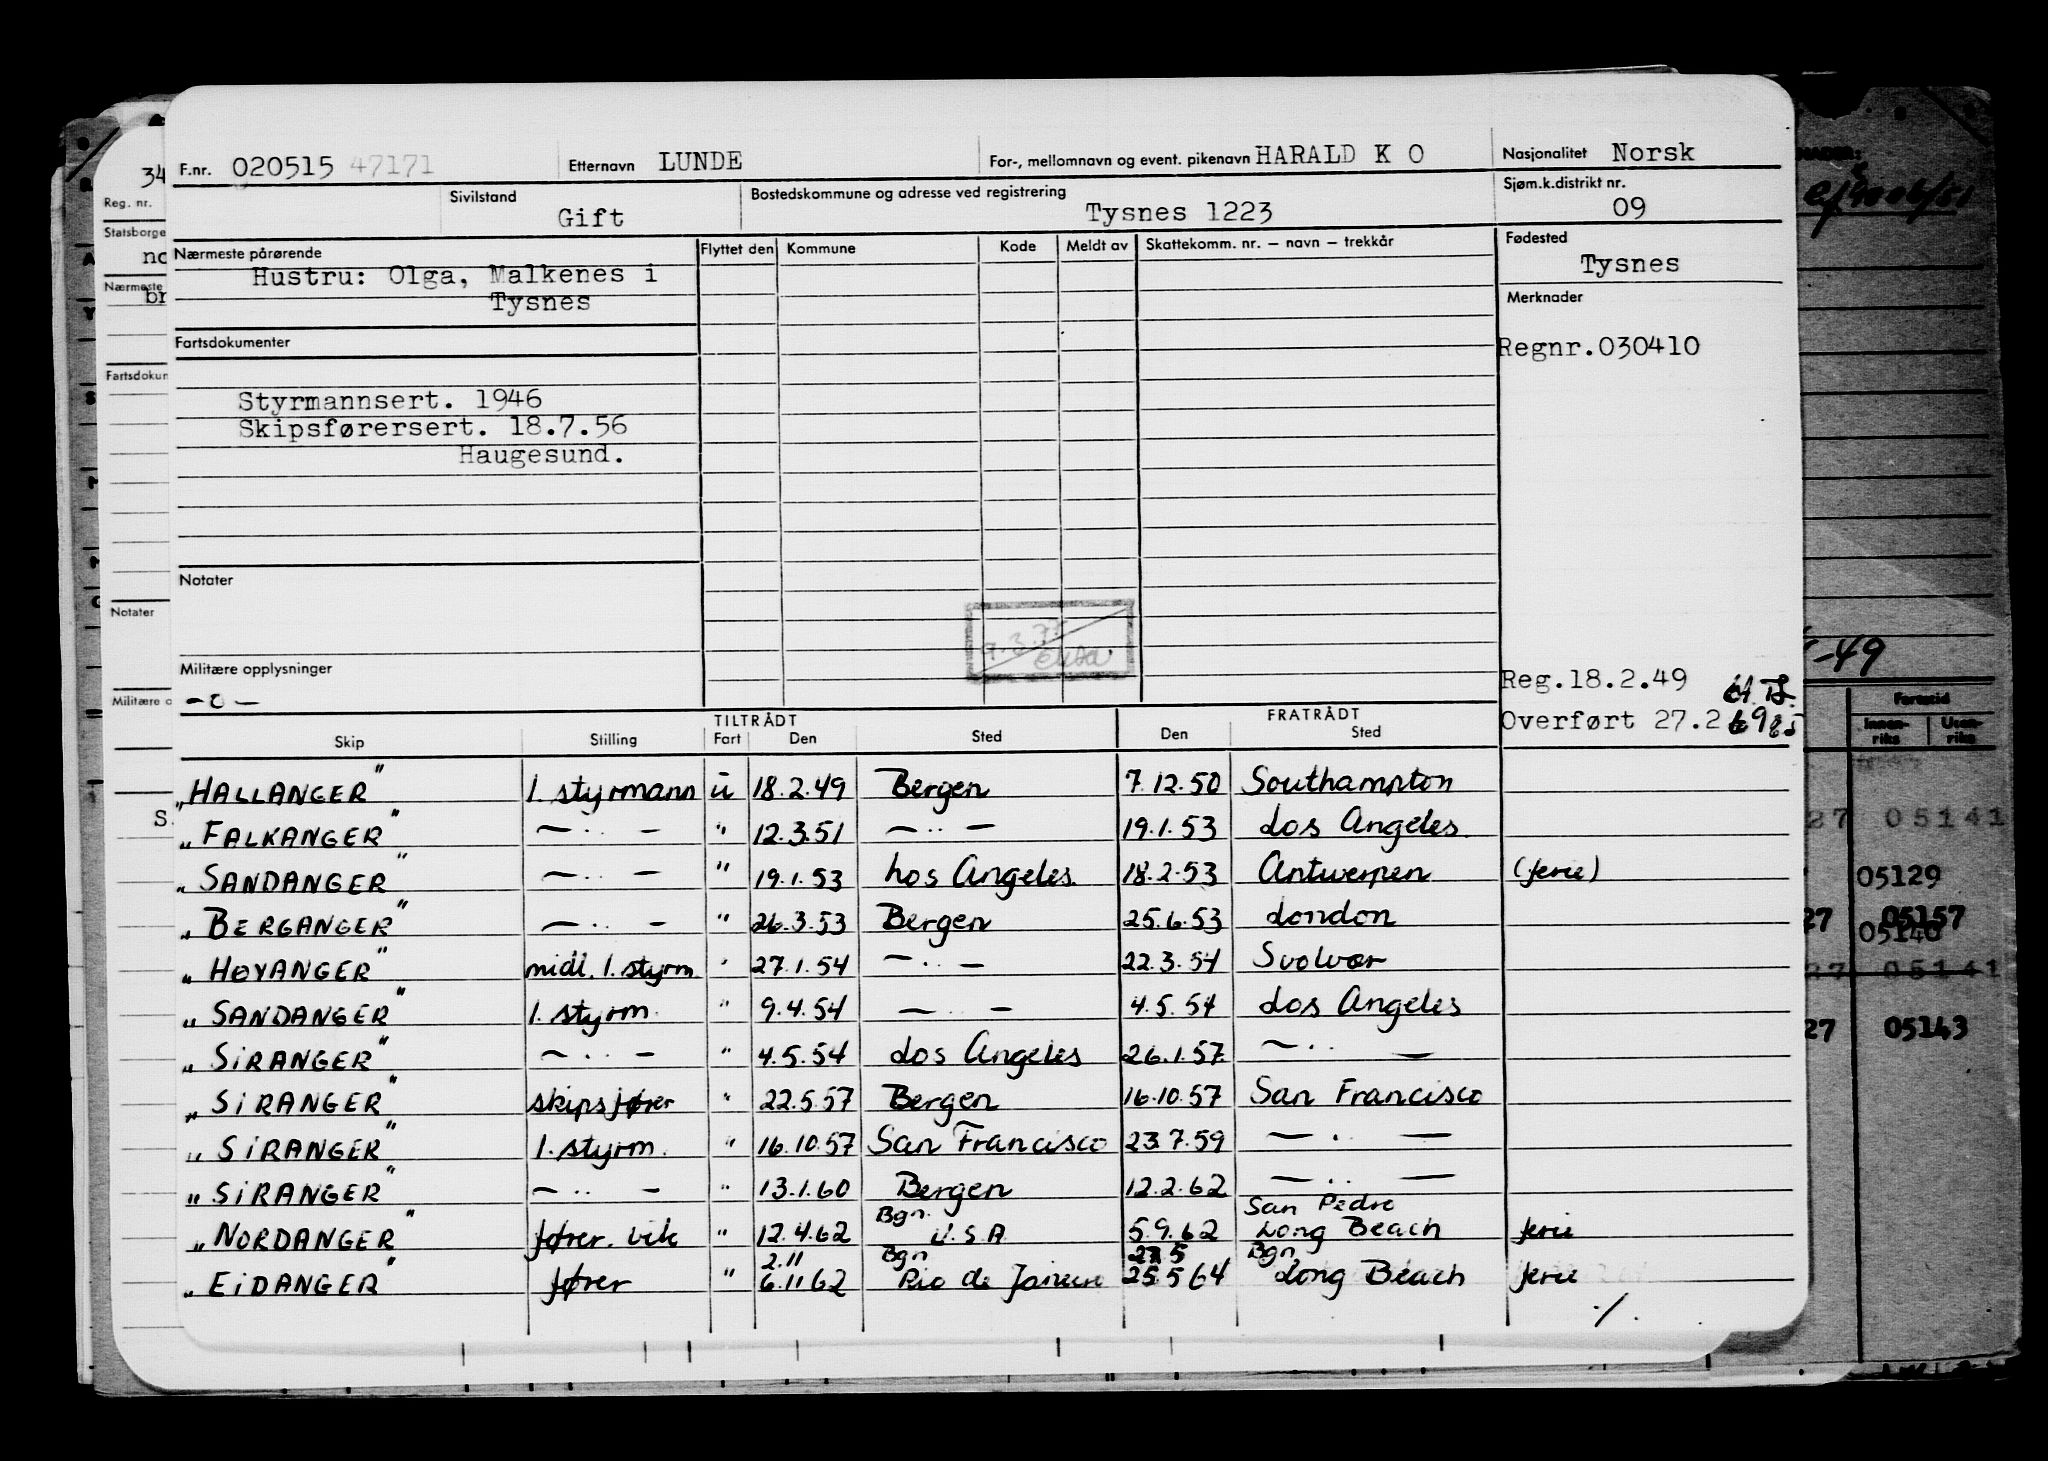 F.nr. 020515 47171 Etternavn LUNDE For-, mellomnavn og event. pikenavn HARALD K O Nasjonalitet Norsk
Sivilstand Gift Bostedskommune og adresse ved registrering Tysnes 1223 Sjøm.k.distrikt nr. 09
Nærmeste pårørende Flyttet den Kommune Kode Meldt av Skattekomm. nr. – navn – trekkår Fødested
Hustru: Olga, Malkenes i Tysnes
Tysnes
Merknader
Fartsdokumenter
Regnr.030410
Styrmannsert. 1946
Skipsførersert. 18.7.56
Haugesund.
Notater
Militære opplysninger
Reg.18.2.49
– o –
Overført 27.2
TILTRÅDT FRATRÅDT
Skip Stilling Fart Den Sted Den Sted
„HALLANGER" 1. styrmann u 18.2.49 Bergen 7.12.50 Southampton
„FALKANGER" — ·· — " 12.3.51 — ·· — 19.1.53 Los Angeles
„SANDANGER" — ·· — " 19.1.53 Los Angeles 18.2.53 Antwerpen (ferie)
„BERGANGER" — ·· — " 26.3.53 Bergen 25.6.53 London
„HØYANGER" midl. 1. styrm " 27.1.54 — ·· — 22.3.54 Svolvær
„SANDANGER" 1. styrm. " 9.4.54 — ·· — 4.5.54 Los Angeles
„SIRANGER" — ·· — " 4.5.54 Los Angeles 26.1.57 — ·· —
„SIRANGER" skipsfører " 22.5.57 Bergen 16.10.57 San Francisco
„SIRANGER" 1. styrm. " 16.10.57 San Francisco 23.7.59 — · —
„SIRANGER" — ·· — " 13.1.60 Bergen 12.2.62 — ·· —
Bgn. San Pedro
„NORDANGER" fører. vik " 12.4.62 U.S.A 5.9.62 Long Beach ferie
2.11 Bgn Bgn
„EIDANGER" fører " 6.11 62 Rio de Janeiro 25 5 64 Long Beach ferie
·/.
34
Reg. nr.
Statsborge
Nærmeste
br
Fartsdokun
Notater
Militære o
S.
-49
Innen-riks Uten-riks
27 05141
05129
27 05157
05140
27 05141
27 05143